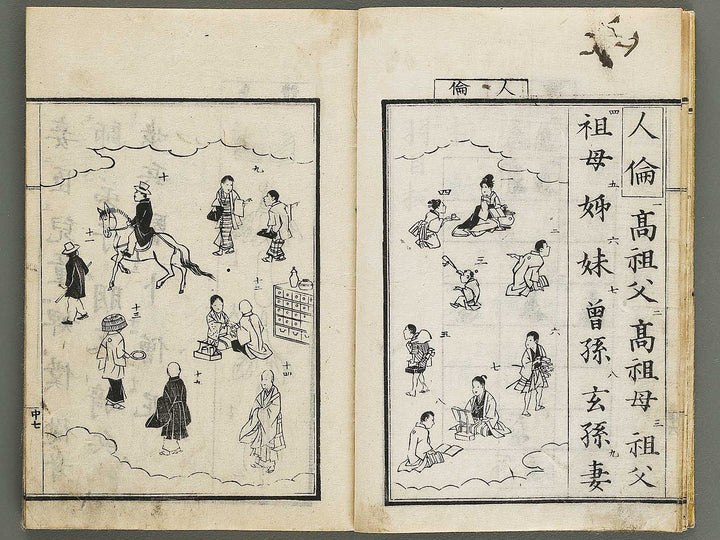 人倫
人倫 一高祖父 二高祖母 三祖父
四祖母 五姊 六妹 七曾孫 八玄孫 九妻
四
二
三
五
六
七
八
九
十
十一
十二
十三
十四
中七